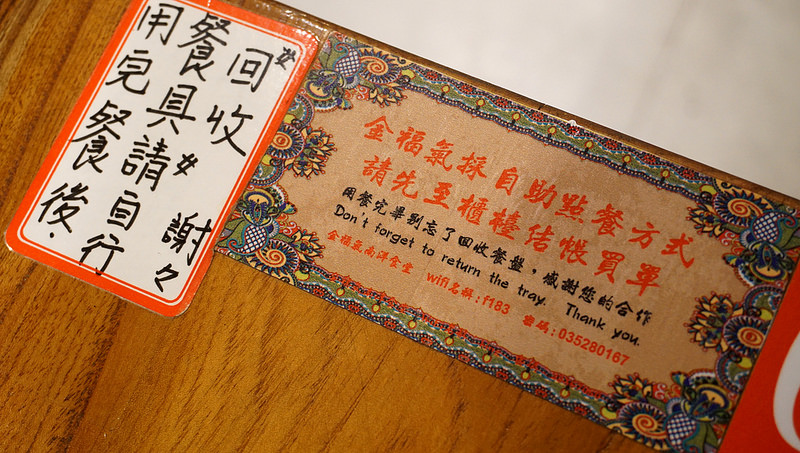 用完餐後.
餐具請自行
回收 謝々
金福氣採自助點餐方式
請先至櫃檯結帳買單
用餐完畢別忘了回收餐盤，感謝您的合作
Don't forget to return the tray. Thank you.
金福氣南洋食堂 wifi名稱:f183 密碼:035280167